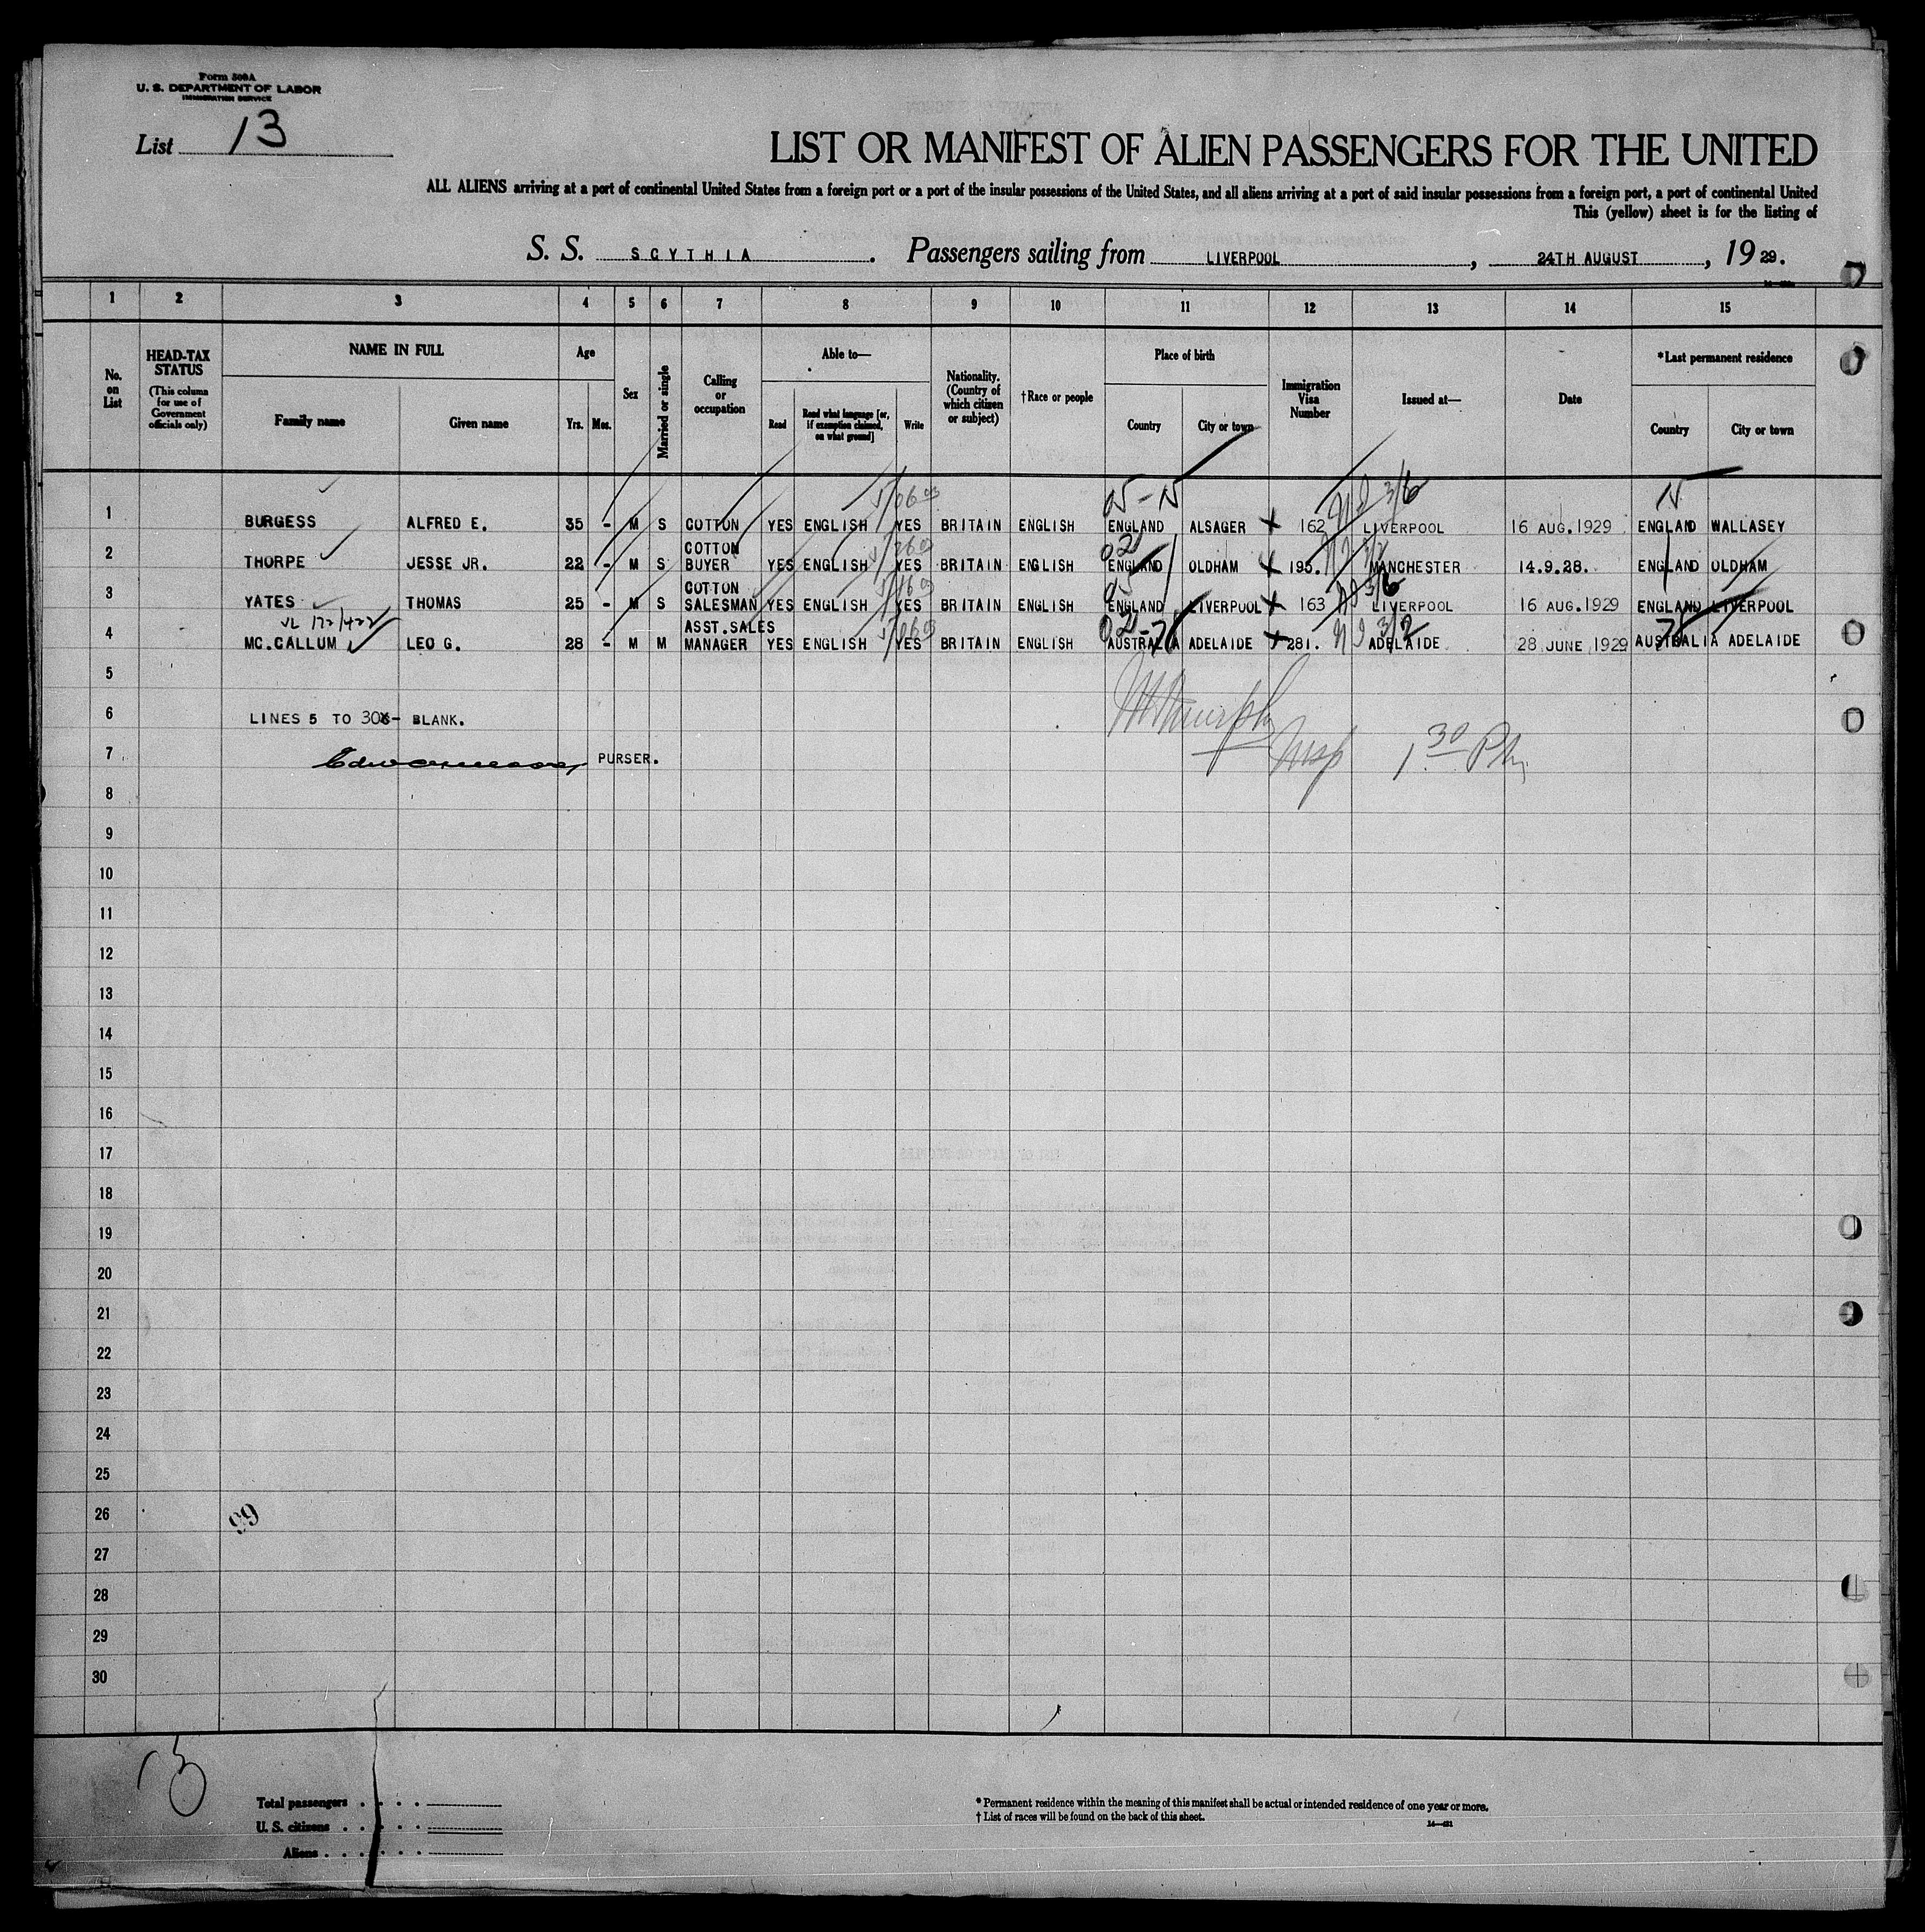 Form 500A
U. S. DEPARTMENT OF LABOR
IMMIGRATION SERVICE
List 13
LIST OR MANIFEST OF ALIEN PASSENGERS FOR THE UNITED
ALL ALIENS arriving at a port of continental United States from a foreign port or a port of the insular possessions of the United States, and all aliens arriving at a port of said insular possessions from a foreign port, a port of continental United
This (yellow) sheet is for the listing of
S. S. SCYTHIA. Passengers sailing from LIVERPOOL, 24TH AUGUST, 1929.
1 2 3 4 5 6 7 8 9 10 11 12 13 14 15
No. on List
HEAD-TAX STATUS (This column for use of Government officials only)
NAME IN FULL
Family name Given name
Age
Yrs. Mos.
Sex
Married or single
Calling or occupation
Able to—
Read Read what language [or, if exemption claimed, on what ground] Write
Nationality. (Country of which citizen or subject)
†Race or people
Place of birth
Country City or town
Immigration Visa Number
Issued at—
Date
*Last permanent residence
Country City or town
1 BURGESS ALFRED E. 35 - M S COTTON YES ENGLISH YES BRITAIN ENGLISH ENGLAND ALSAGER 162 LIVERPOOL 16 AUG.1929 ENGLAND WALLASEY
2 THORPE JESSE JR. 22 - M S COTTON BUYER YES ENGLISH YES BRITAIN ENGLISH ENGLAND OLDHAM 195. MANCHESTER 14.9.28. ENGLAND OLDHAM
3 YATES THOMAS 25 - M S COTTON SALESMAN YES ENGLISH YES BRITAIN ENGLISH ENGLAND LIVERPOOL 163 LIVERPOOL 16 AUG.1929 ENGLAND LIVERPOOL
4 MC.CALLUM LEO G. 28 - M M ASST.SALES MANAGER YES ENGLISH YES BRITAIN ENGLISH AUSTRALIA ADELAIDE 281. ADELAIDE 28 JUNE 1929 AUSTRALIA ADELAIDE
5
6 LINES 5 TO 30 - BLANK.
7 PURSER. Insp 1 30 PM
8
9
10
11
12
13
14
15
16
17
18
19
20
21
22
23
24
25
26
27
28
29
30
13
Total passengers
U. S. citizens
Aliens
* Permanent residence within the meaning of this manifest shall be actual or intended residence of one year or more.
† List of races will be found on the back of this sheet.